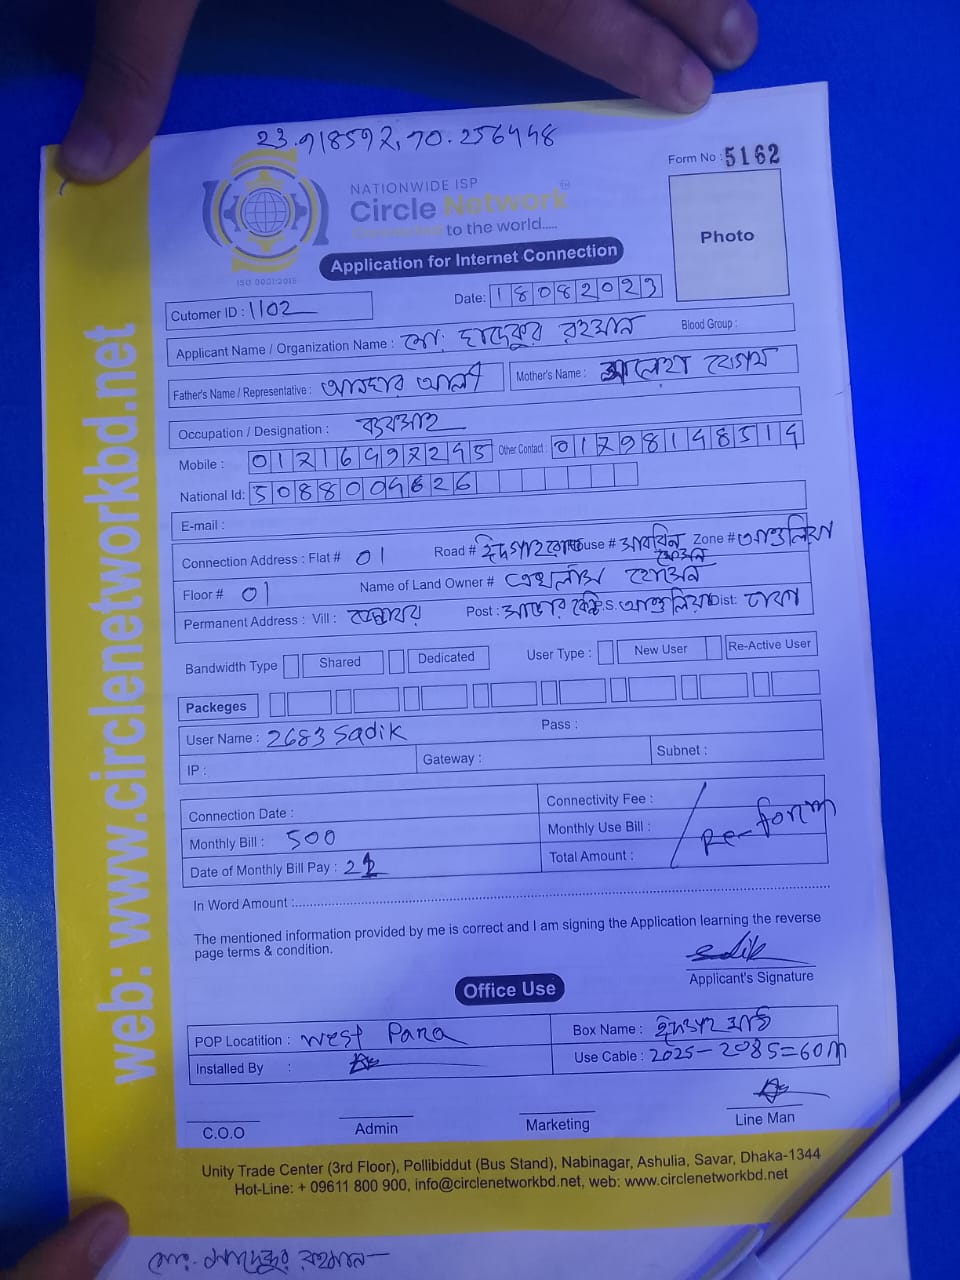 23.918592, 90.256448
Form No : 5162
NATIONWIDE ISP
Circle Network
Connected to the world.....
ISO 9001:2015
Photo
Application for Internet Connection
Cutomer ID : 1102
Date: 18082023
Applicant Name / Organization Name : মো: ছাদেকুর রহমান Blood Group :
Father's Name / Representative : আনছার আলী Mother's Name : সালেহা বেগম
Occupation / Designation :
Mobile : 01716497245 Other Contact : 01798148514
National Id: 5088004626
E-mail :
Connection Address : Flat # 01 Road # ঈদগাহ রোড House # Zone # আশুলিয়া
Floor # 01 Name of Land Owner # হোসেন
Permanent Address : Vill : Post : P.S. আশুলিয়া Dist: ঢাকা
Bandwidth Type Shared Dedicated User Type : New User Re-Active User
Packeges
User Name : 2683 Sadik Pass :
IP : Gateway : Subnet :
Connection Date : Connectivity Fee :
Monthly Bill : 500 Monthly Use Bill : Re-form
Date of Monthly Bill Pay : 21 Total Amount :
In Word Amount :
The mentioned information provided by me is correct and I am signing the Application learning the reverse
page terms & condition.
Sadik
Applicant's Signature
Office Use
POP Locatition : West Para Box Name : ঈদগাহ মাঠ
Installed By : Use Cable : 2025-2085=60m
C.O.O Admin Marketing Line Man
Unity Trade Center (3rd Floor), Pollibiddut (Bus Stand), Nabinagar, Ashulia, Savar, Dhaka-1344
Hot-Line: + 09611 800 900, info@circlenetworkbd.net, web: www.circlenetworkbd.net
web: www.circlenetworkbd.net
মোঃ ছাদেকুর রহমান